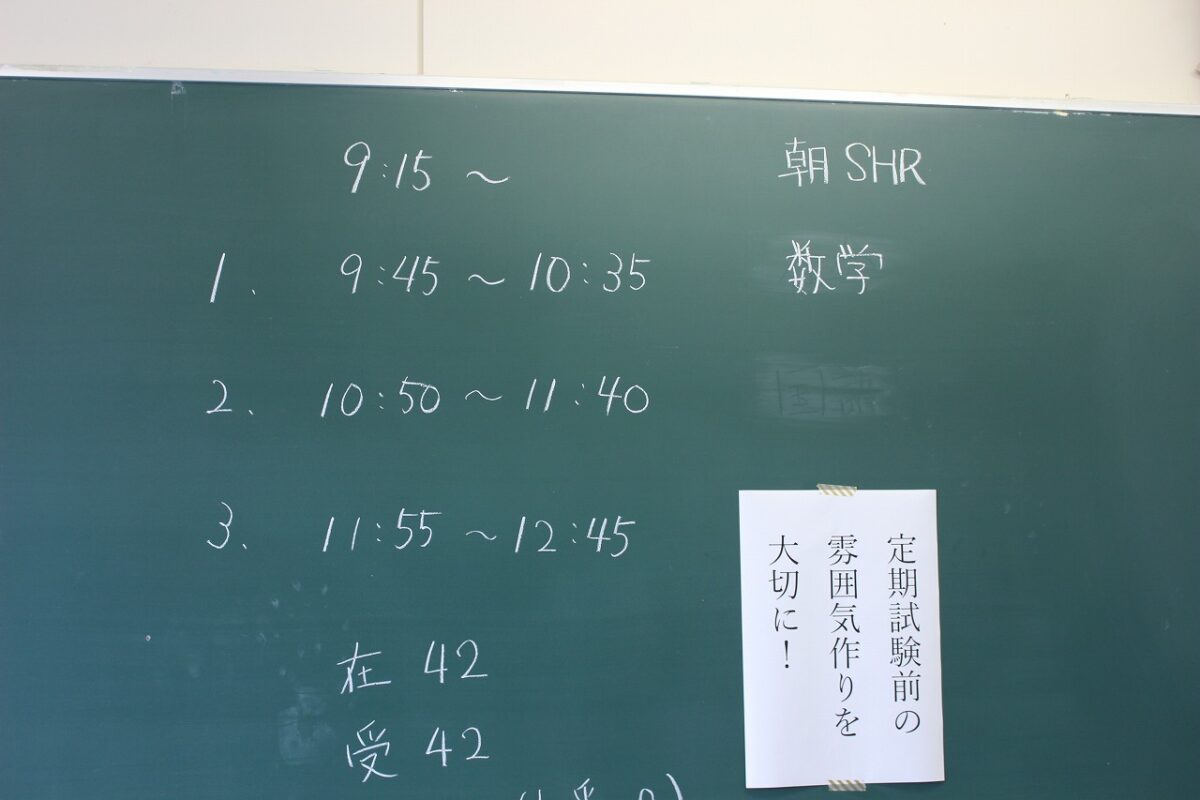 9:15 ~ 朝SHR
1. 9:45 ~ 10:35 数学
2. 10:50 ~ 11:40
3. 11:55 ~ 12:45
在 42
受 42
定期試験前の
雰囲気作りを
大切に!